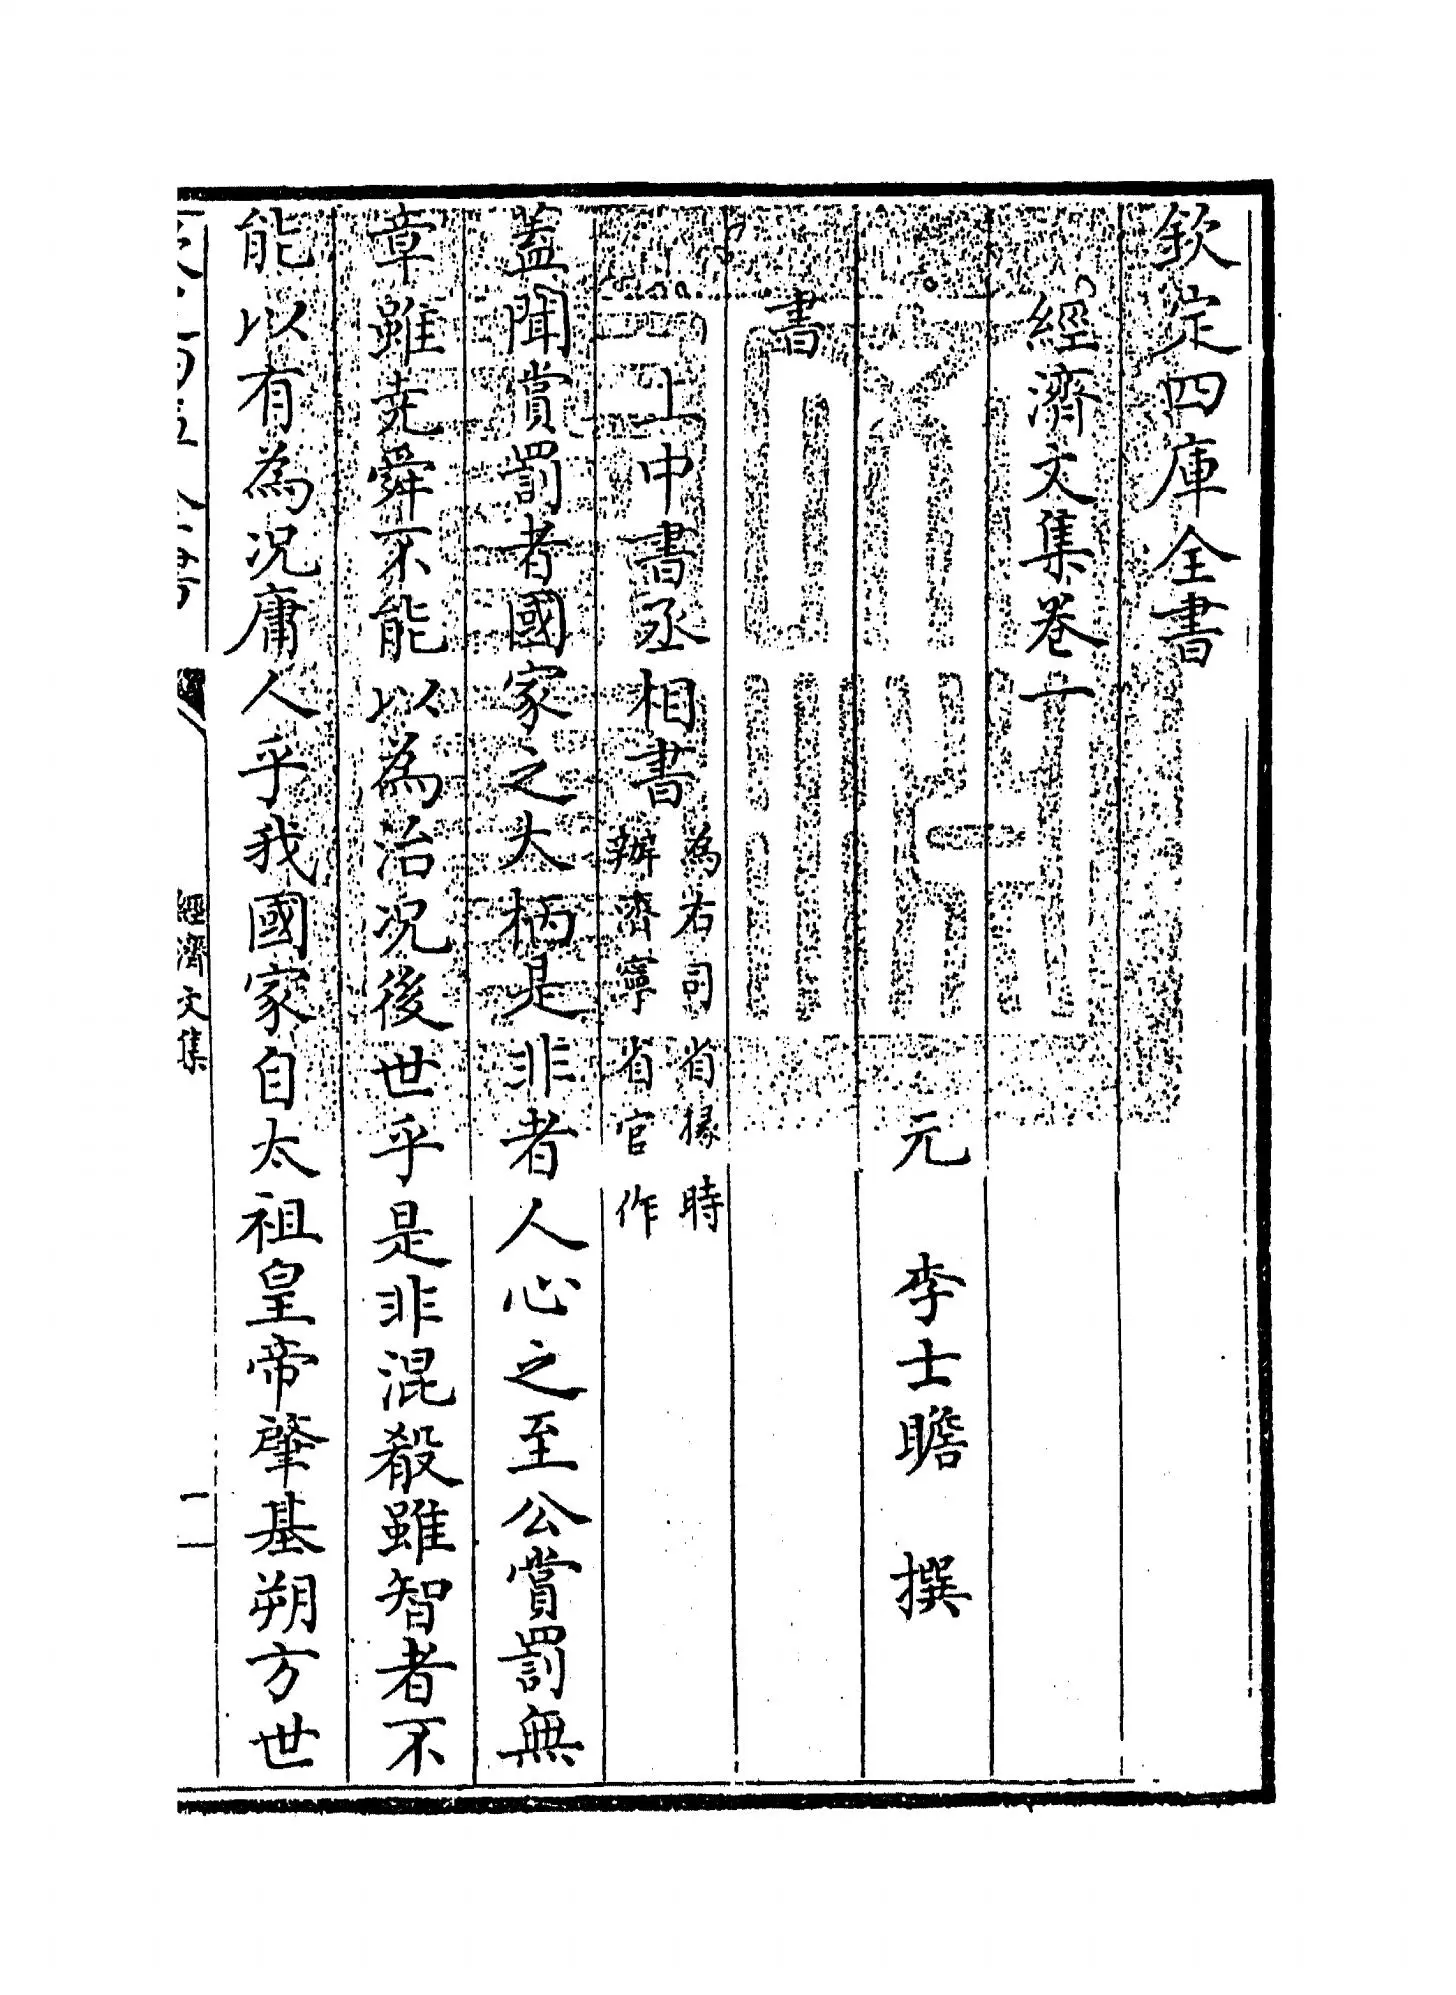 欽定四庫全書
經濟文集卷一
元 李士瞻 撰
書
上中書丞相書
為右司省掾時
辦濟寧省官作
蓋聞賞罰者國家之大柄是非者人心之至公賞罰無
章雖堯舜不能以為治况後世乎是非混殽雖智者不
能以有為况庸人乎我國家自太祖皇帝肇基朔方世
經濟文集
一